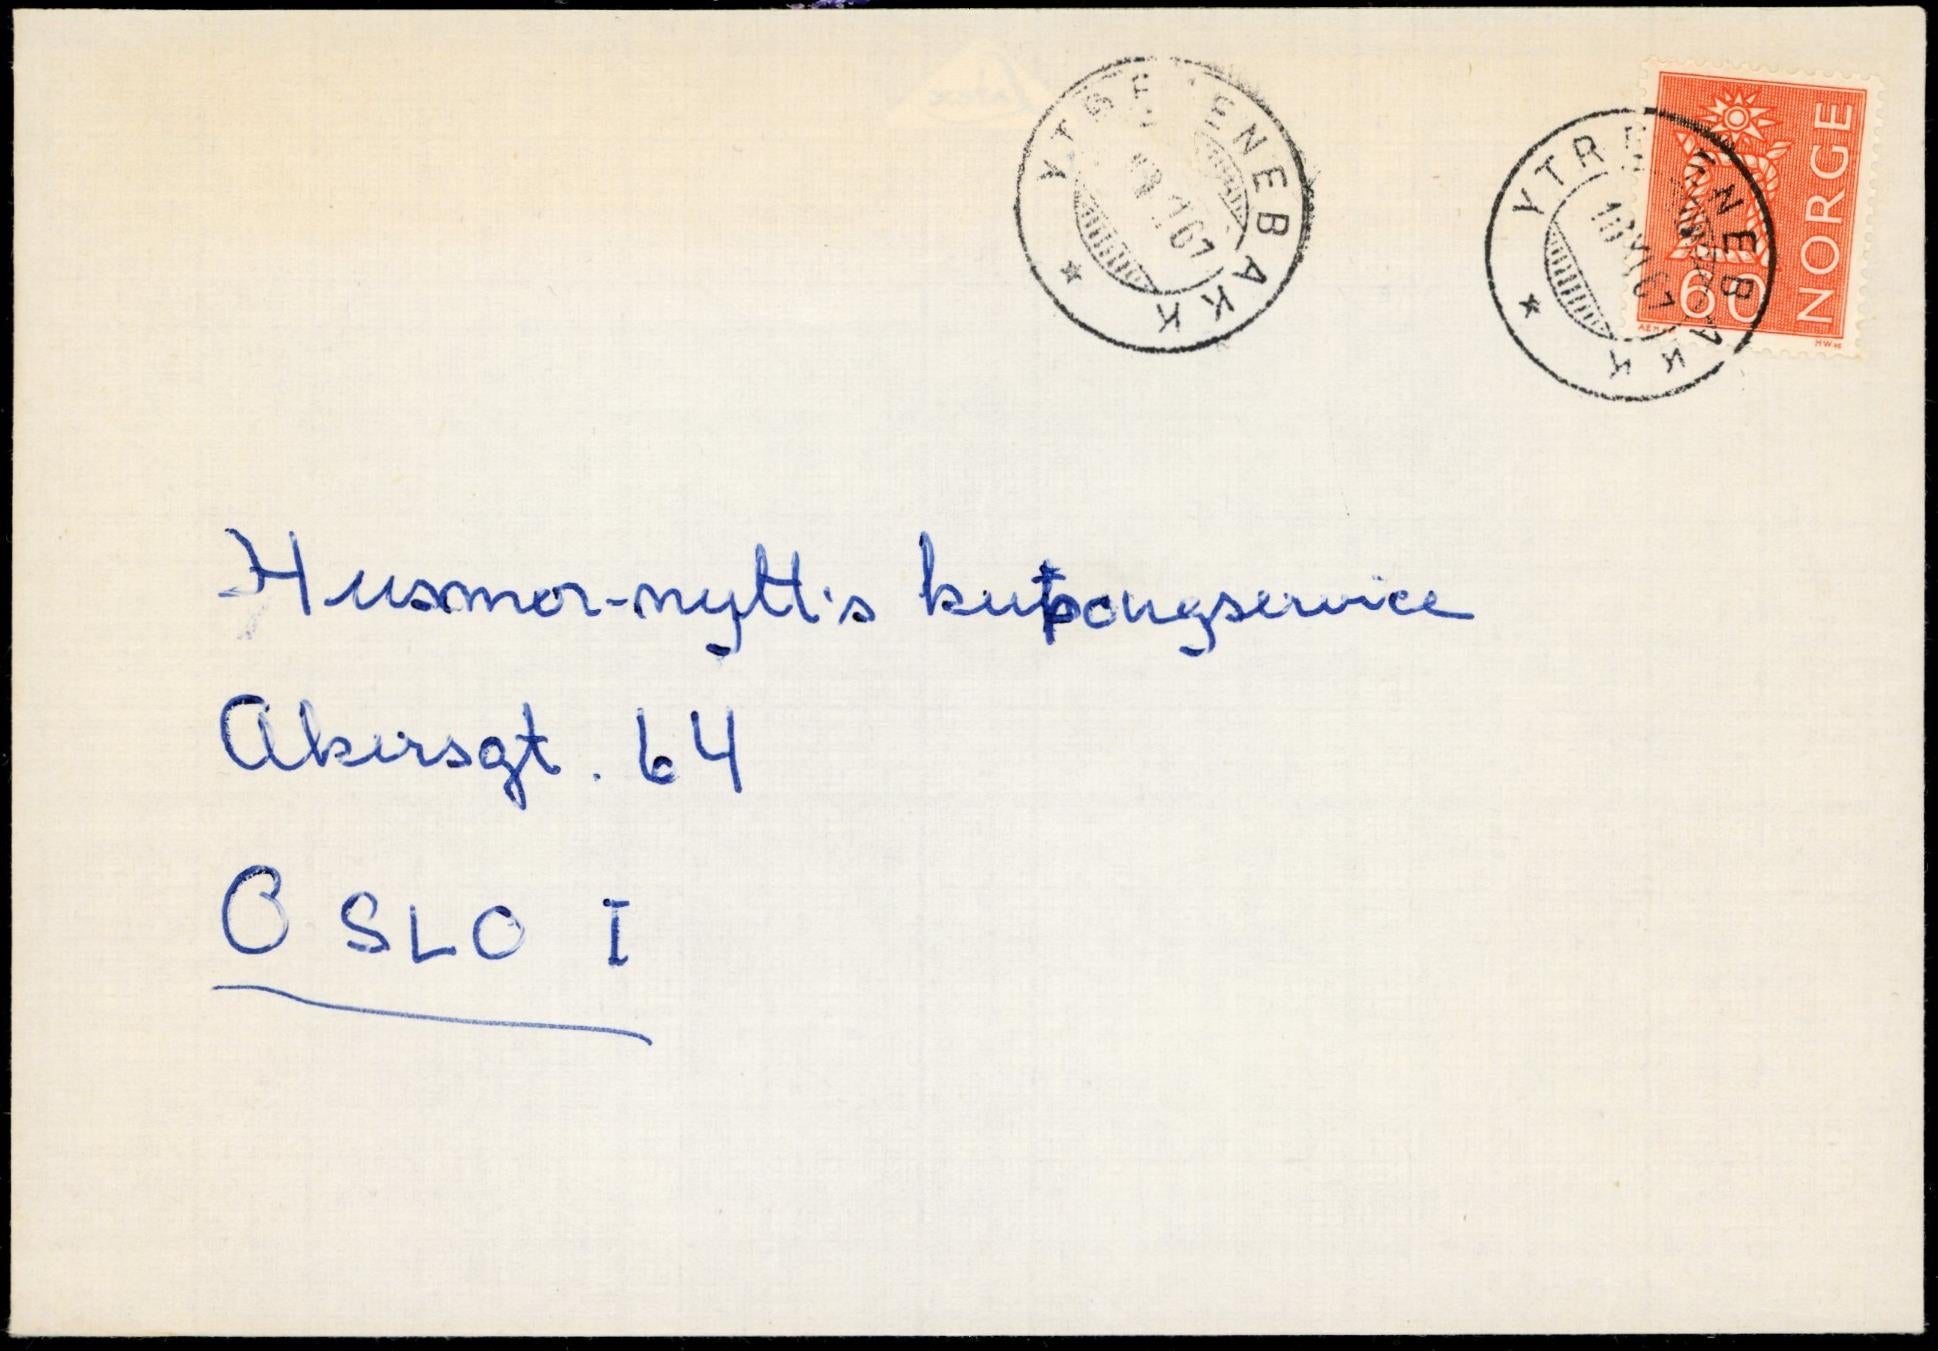 YTRE ENEBAKK
YTRE ENEBAKK
18 XI 67
60 NORGE
Husmor-nytt's kupongservice
Akersgt. 64
OSLO I